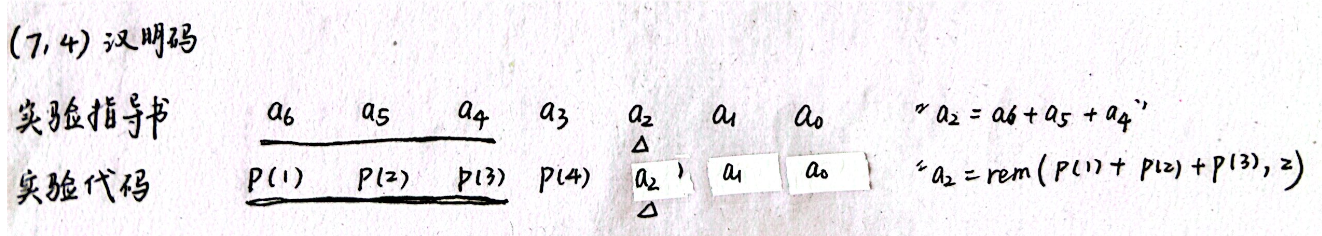 (7,4) 汉明码
实验指导书 a6 a5 a4 a3 a2 a1 a0 "a2 = a6 + a5 + a4"
实验代码 P(1) P(2) P(3) P(4) a2 a1 a0 "a2 = rem(P(1) + P(2) + P(3), 2)